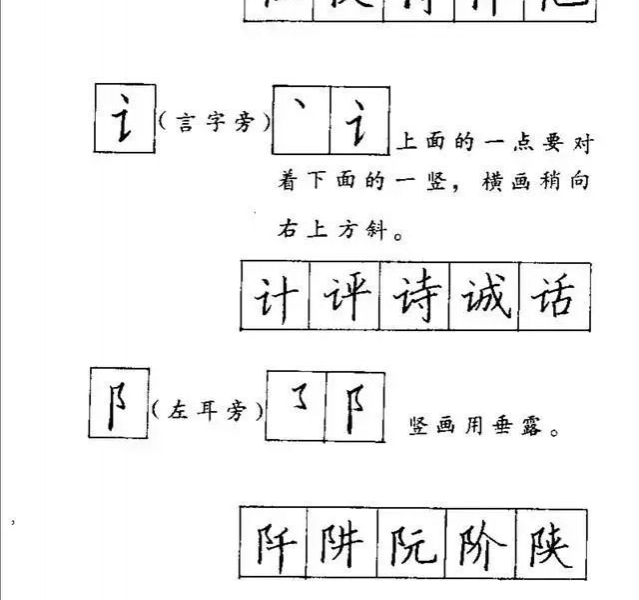 讠(言字旁)丶讠上面的一点要对
着下面的一竖，横画稍向
右上方斜。
计评诗诚话
阝(左耳旁)㇌阝竖画用垂露。
阡阱阮阶陕